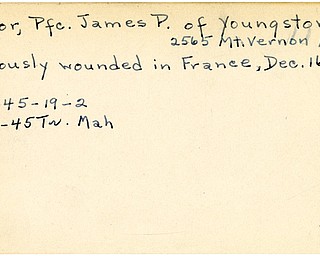 or, Pfc. James P. of Youngstow
2565 Mt. Vernon
ously wounded in France, Dec. 16
45-19-2
-45 Tr. Mah